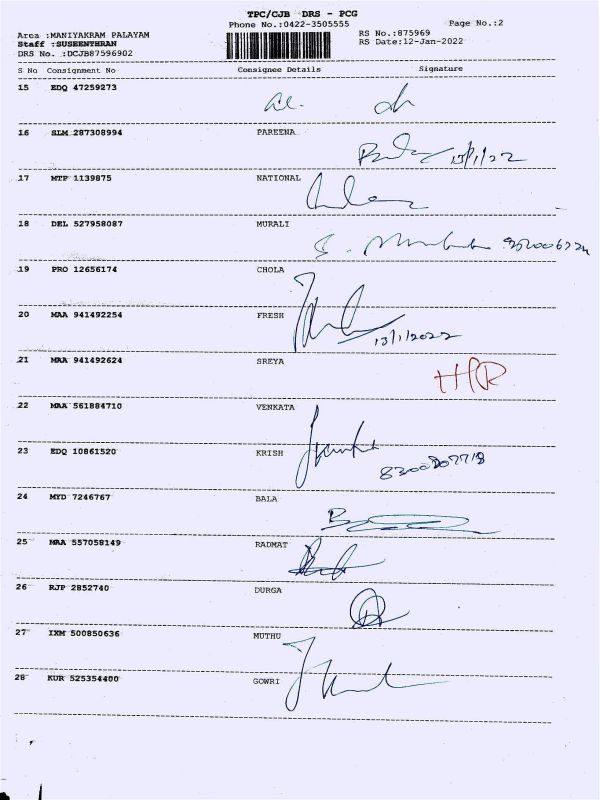 TPC/CJB DRS - PCG
Phone No.:0422-3505555
Page No.:2
Area :MANIYAKRAM PALAYAM
RS No.:875969
Staff :SUSEENTHRAN
RS Date:12-Jan-2022
DRS No. :DCJB87596902
S No Consignment No Consignee Details Signature
15 EDQ 47259273
16 SLM 287308994 PAREENA
13/1/22
17 MTP 1139875 NATIONAL
18 DEL 527958087 MURALI
19 PRO 12656174 CHOLA
20 MAA 941492254 FRESH
13/1/2022
21 MAA 941492624 SREYA
22 MAA 561884710 VENKATA
23 EDQ 10861520 KRISH
24 MYD 7246767 BALA
25 MAA 557058149 RADMAT
26 RJP 2852740 DURGA
27 IXM 500850636 MUTHU
28 KUR 525354400 GOWRI